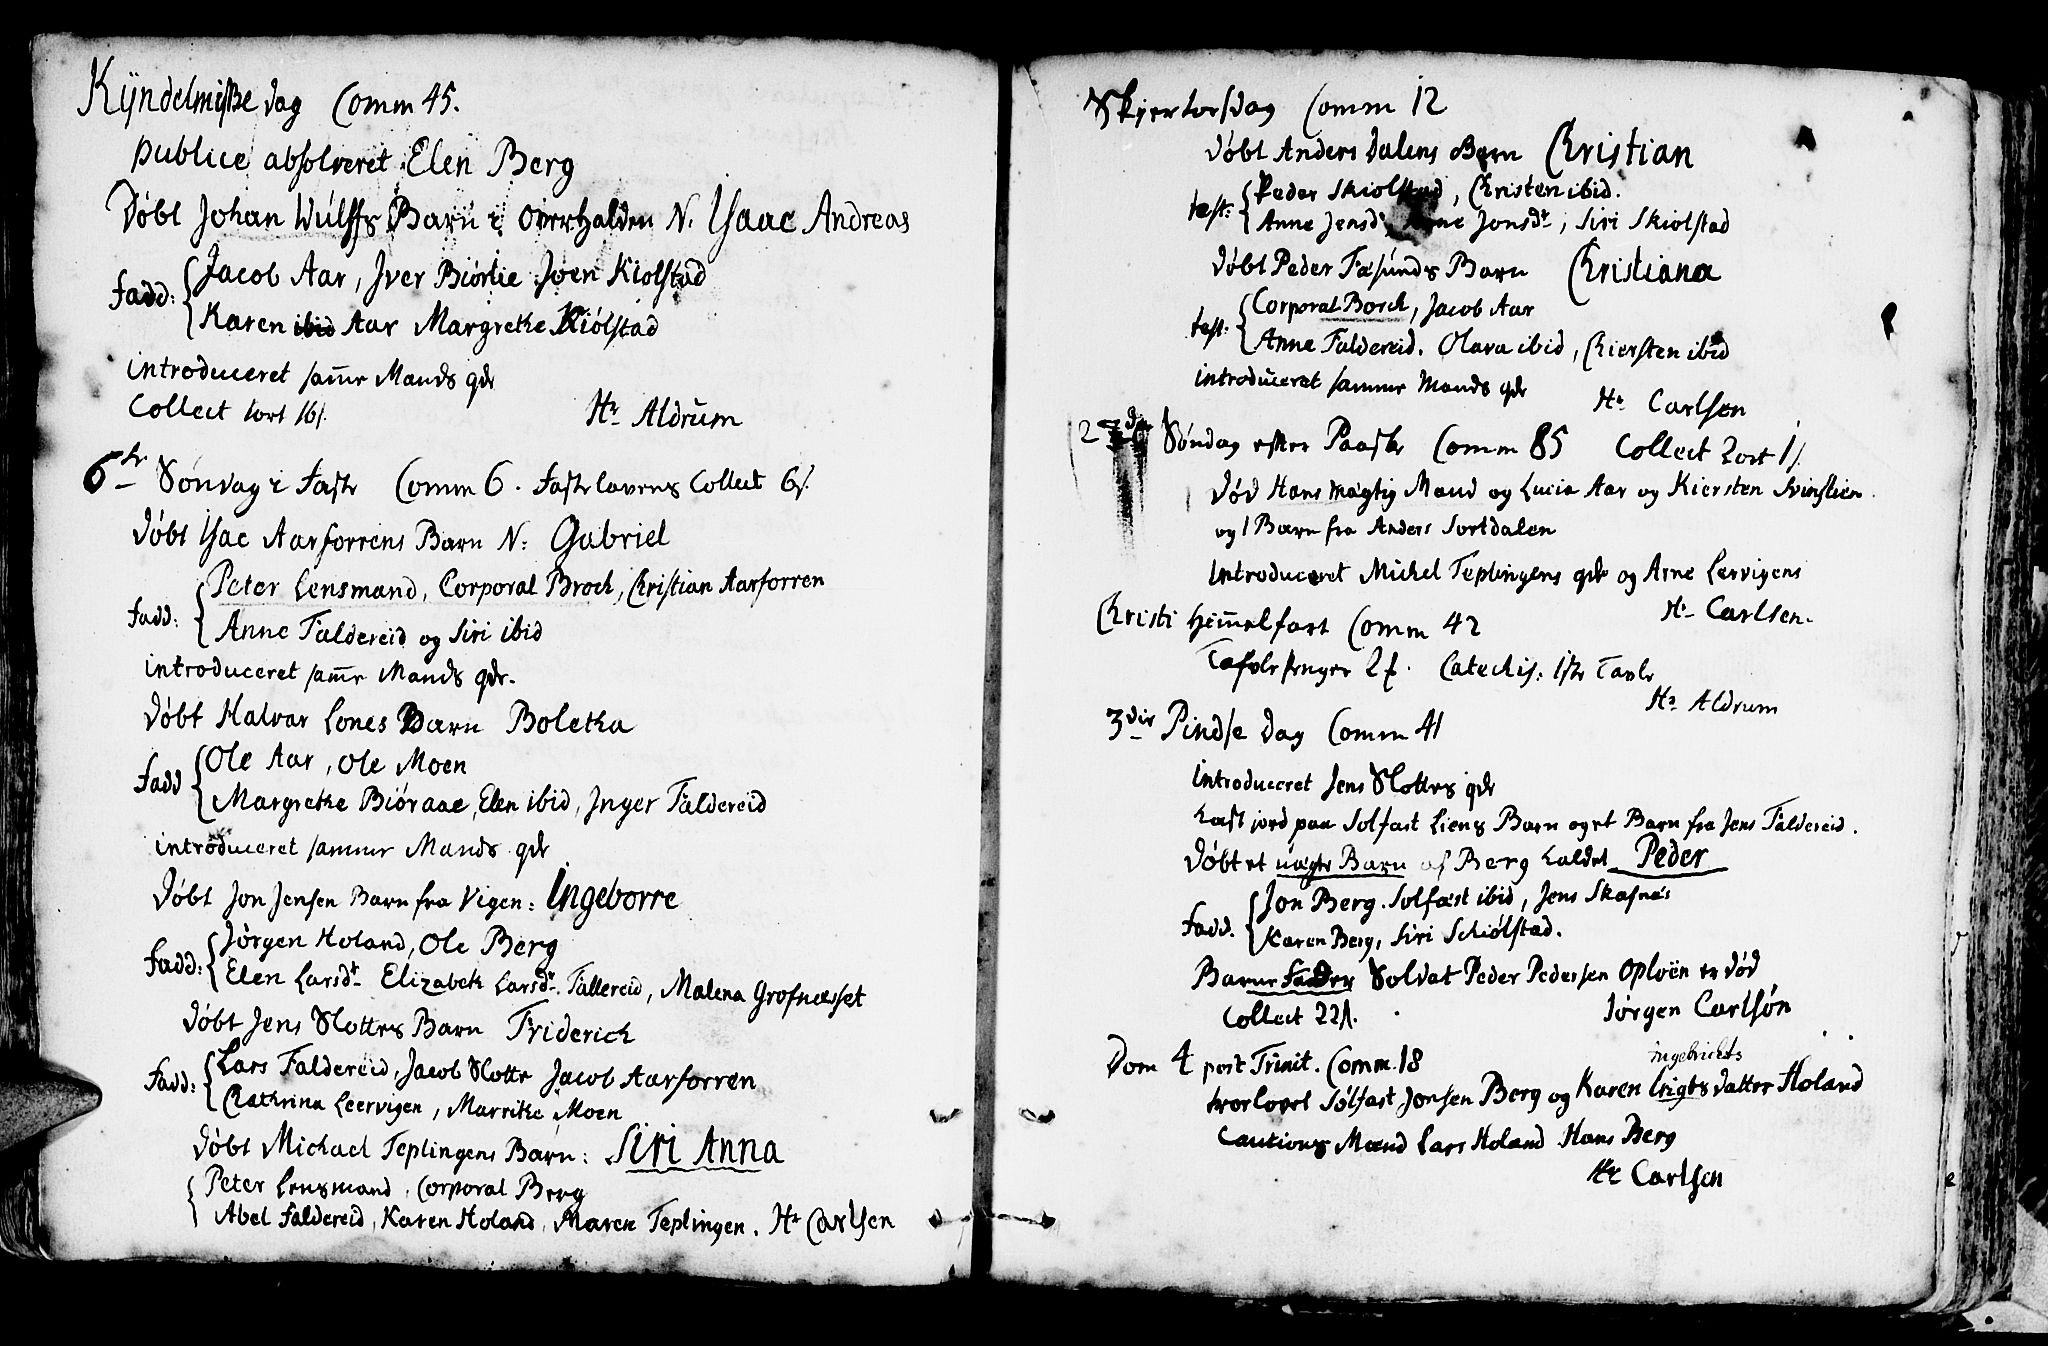 Kÿndelmisse dag Comm 45.
Publice absolveret Elen Berg
Døbt Johan Wulffs Barn i Overhalden N. Isaac Andreas
Fadd: Jacob Aar, Iver Biørlie Joen Kiolstad
Karen ibid Aar Margrethe Kiølstad
introduceret same Mands qdr
Collect 1ort 16s. Hr Aldrum
6te Søndag i Faste Comm 6. Fastelavens Collect 6s.
Døbt Isac Aarforrens Barn N: Gabriel
Fadd: Peter Lensmand, Corporal Broch, Christian Aarforren
Anne Faldereid og Siri ibid
introduceret same Mands qdr.
Døbt Halvar Lones Barn Boletha
Fadd Ole Aar, Ole Moen
Margrethe Biøraae, Elen ibid, Inger Faldereid
introduceret samme Mands qdr
Døbt Jon Jensen Barn fra Vigen: Ingeborre
Fadd: Jørgen Holand, Ole Berg
Elen Larsdtr Elizabeth Larsdtr. Fallereid, Malena Grofnæsset
Døbt Jens Slottes Barn Friderich
Fadd: Lars Faldereid, Jacob Slotte Jacob Aarforren
Chathrina Leervigen, Marrithe Moen
Døbt Michael Teplingens Barn: Siri Anna
Peter Lensmand, Corporal Berg
Abel Faldereid, Karen Holand, Maren Teplingen. Hr Carlsen
Skjertorsdag Comm 12
Døbt Anders Dalens Barn Christian
test: Peder Skiolstad, Christen ibid.
Anne Jensd, Jonsdtr, Siri Skiolstad
Døbt Peder Fæsunds Barn Christiana
test: Corporal Borch, Jacob Aar
Anne Faldereid. Olava ibid, Chiersten ibid
introduceret samme Mands qdr
Hr Carlsen
2den Søndag efter Paaske Comm 85 Collect 2ort 1s.
Død Hans Magtig Mand og Lucia Aar og Kiersten Svinstien
og 1 Barn fra Anders Sortdalen
Introduceret Michel Teplingens qdr og Arne Lervigens
Hr Carlsen.
Christi Himelfart Comm 42
Tafvle penger Catechis: 1ste Tavle
Hr Aldrum
3die Pindse Dag Comm 41
introduceret Jens Slottes qdr
Kast jord paa Solfast Liens Barn og et Barn fra Jens Faldereid.
Døbt et uægte Barn af Berg kaldet Peder
Fadd. Jon Berg. Solfast ibid, Jens Skafnæs
Karen Berg, Siri Schiølstad.
Barne Fadren Soldat Peder Pedersen Oploën er død
Collect 22s. Jørgen Carlsøn
Dom 4 post Trinit. Comm. 18
ingebrichts
trorlovet Solfast Jonsen Berg og Karen datter Holand
Cautions Mænd Lars Holand Hans Berg
Hr Carlsen